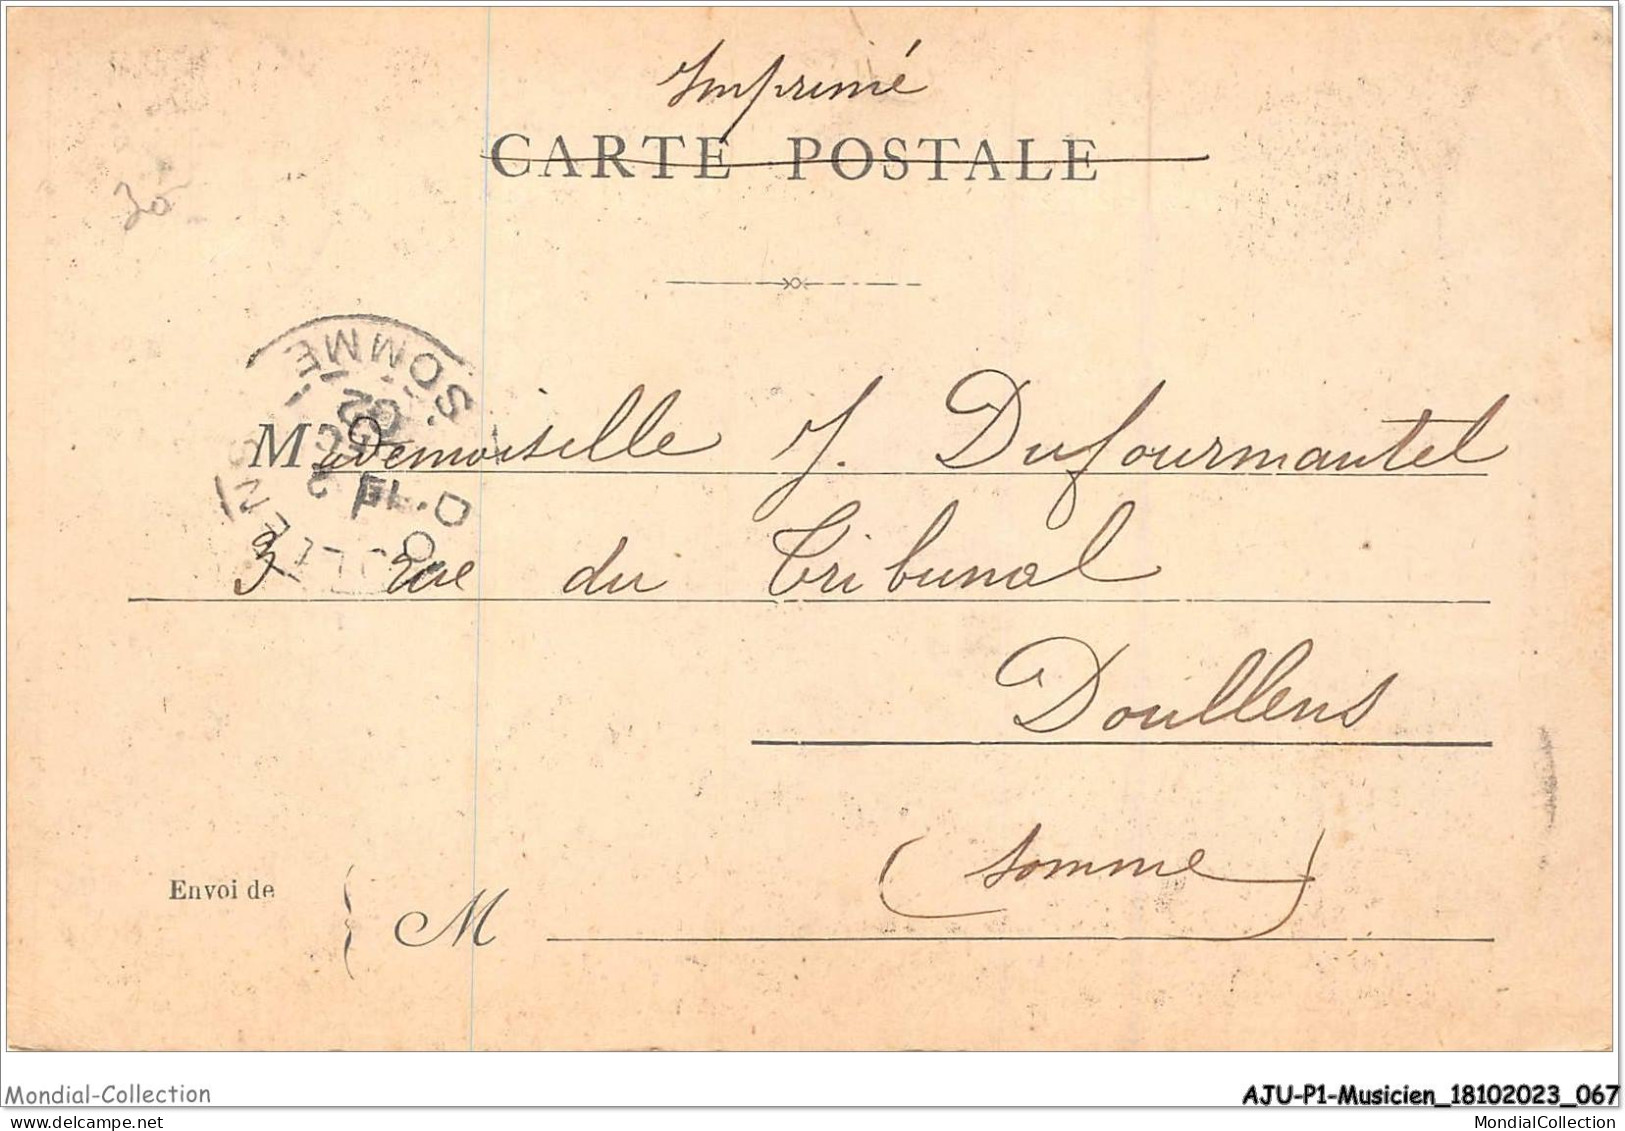 Imprimé
CARTE POSTALE
30
SOMME
DOULLENS
Mademoiselle J. Dufourmantel
3 Rue du Tribunal
Doullens
(Somme)
Envoi de
M
Mondial-Collection
AJU-P1-Musicien_18102023_067
MondialCollection